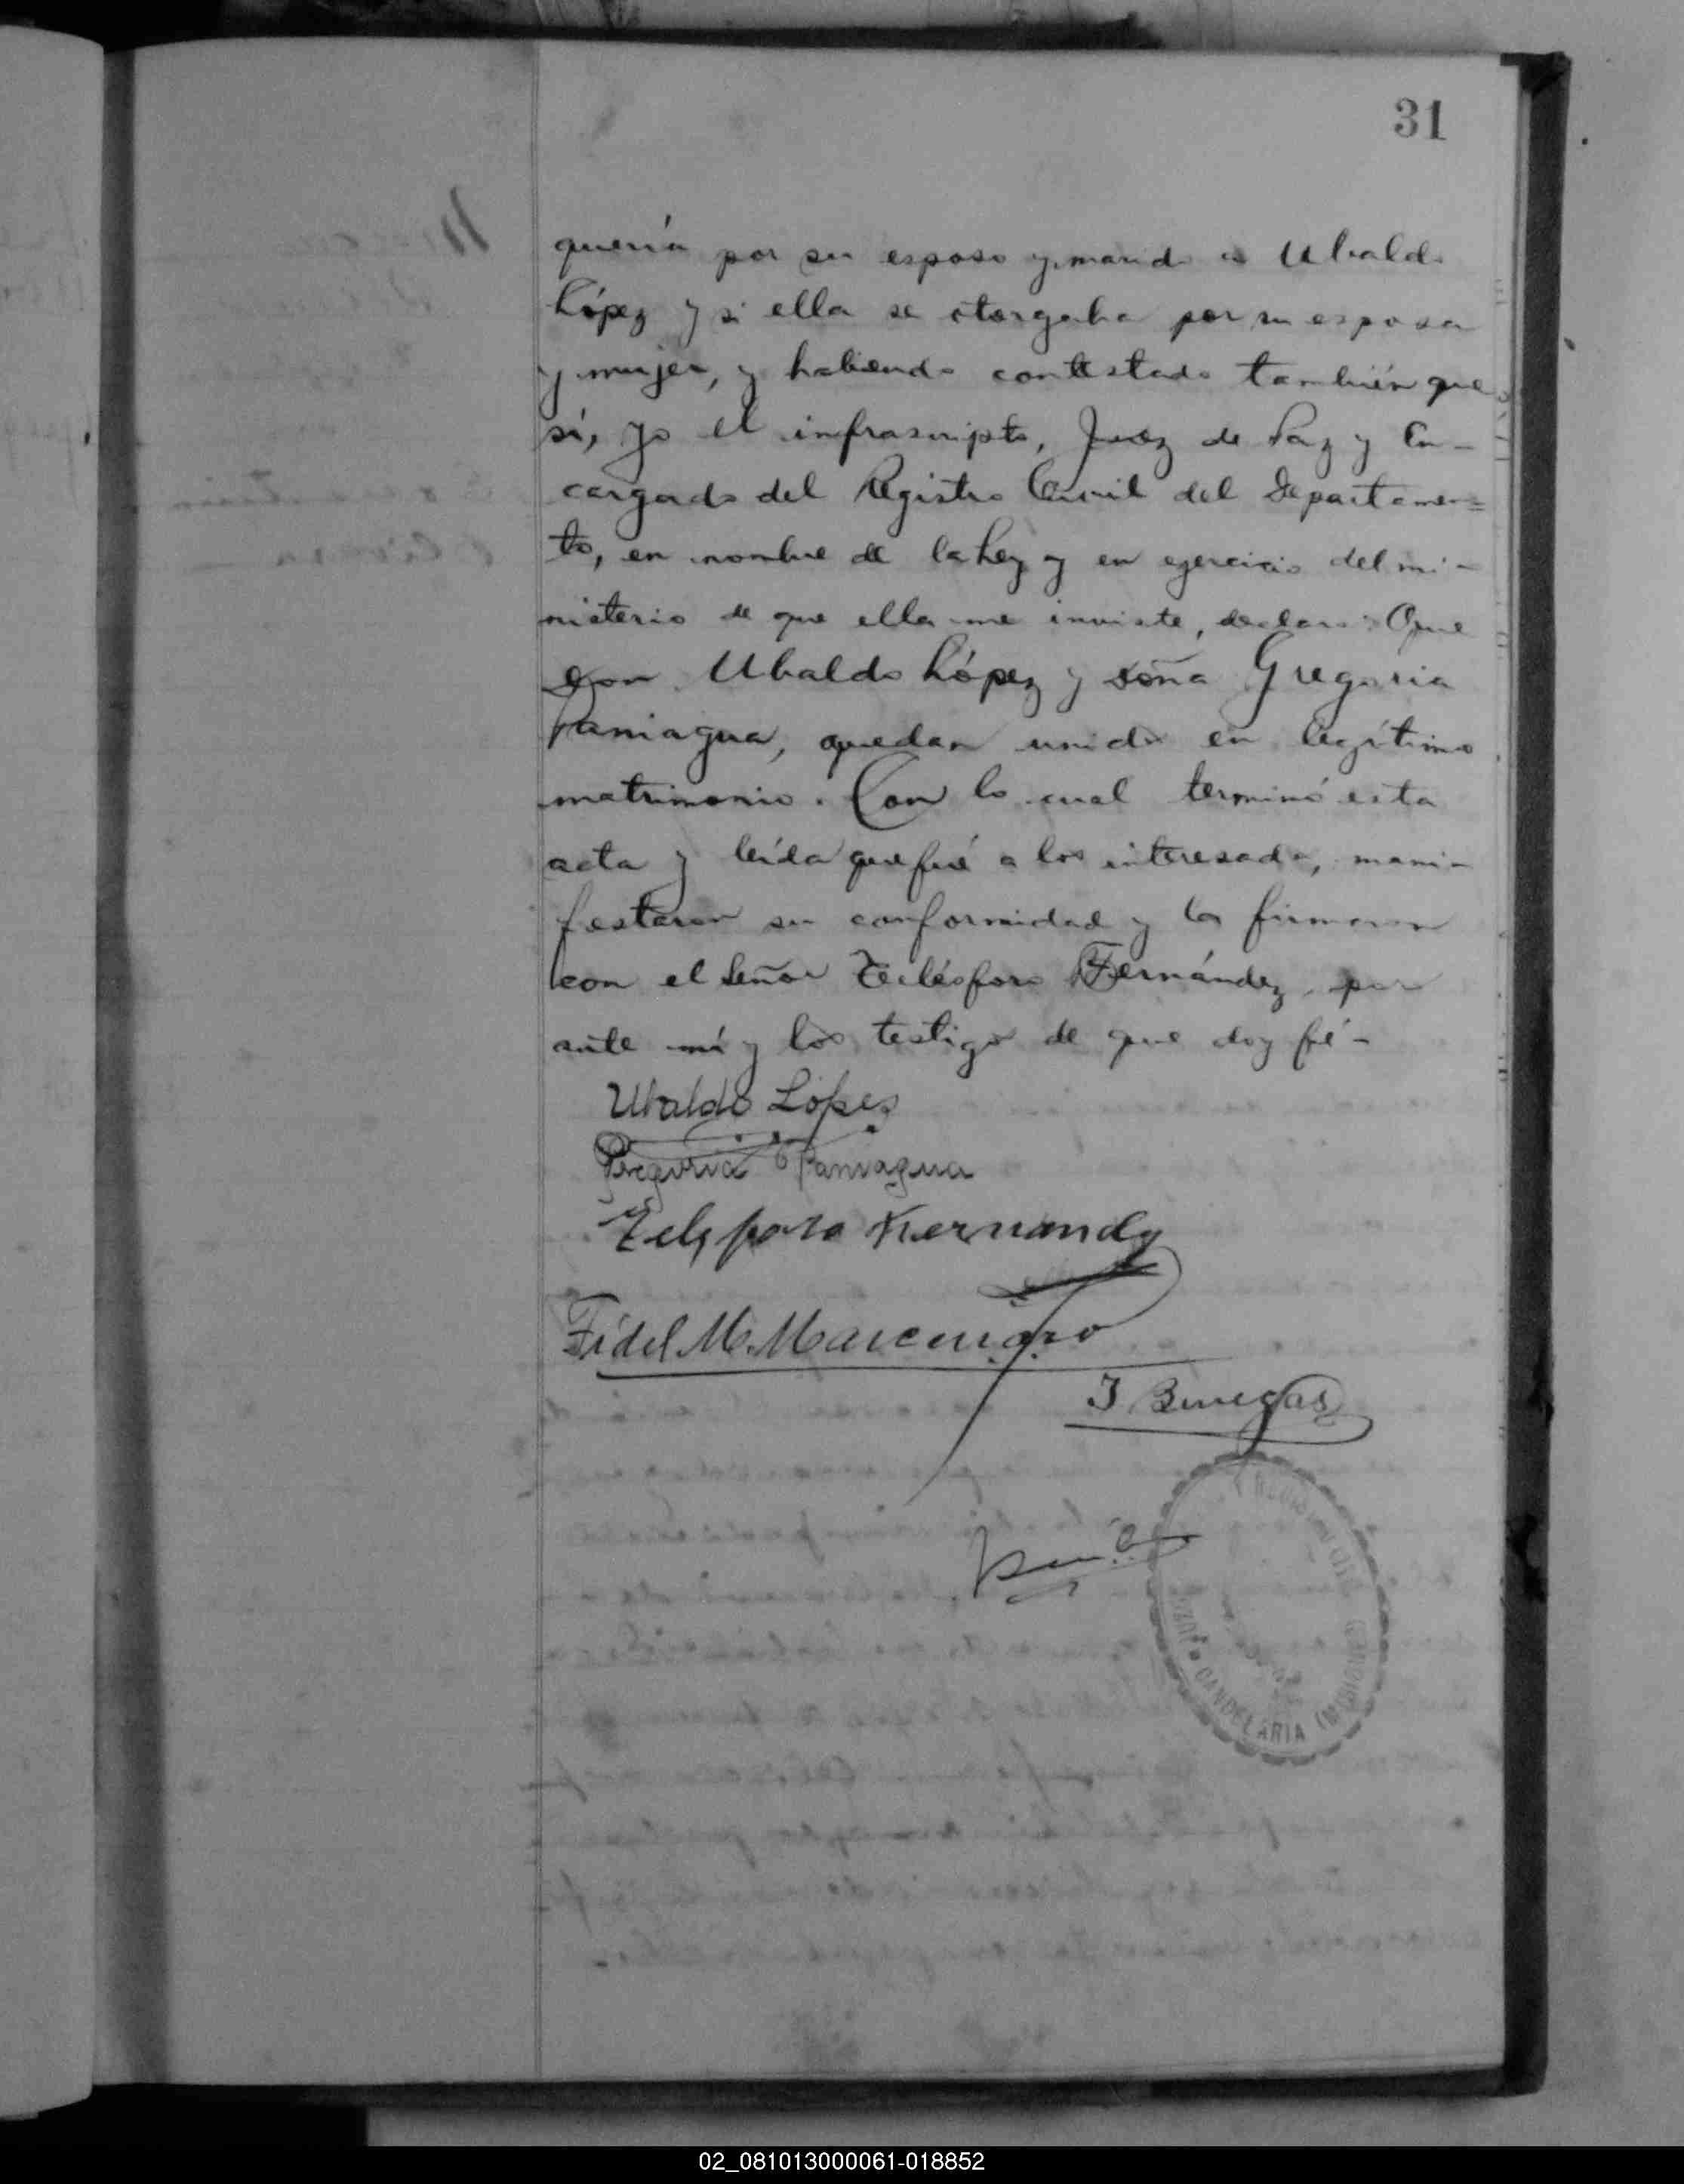 31
quería por su esposo y marido a Ubaldo
López y si ella se otorgaba por su esposa
y mujer, y habiendo contestado también que
sí, yo el infrascripto, Juez de Paz y En-
cargado del Registro Civil del Departamen=
to, en nombre de la Ley y en ejercicio del mi-
nisterio de que ella me inviste, declaro: Que
don Ubaldo López y doña Gregoria
Paniagua, quedan unidos en legítimo
matrimonio. Con lo cual terminó esta
acta y leída que fué a los interesados, mani-
festaron su conformidad y la firmaron
con el Señor Telésforo Fernández, por
ante mí y los testigos de que doy fé-
Ubaldo López
Gregoria Paniagua
Telesforo Fernandez
Fidel M.
J Benegas
CANDELARIA (MISIONES)
02_081013000061-018852